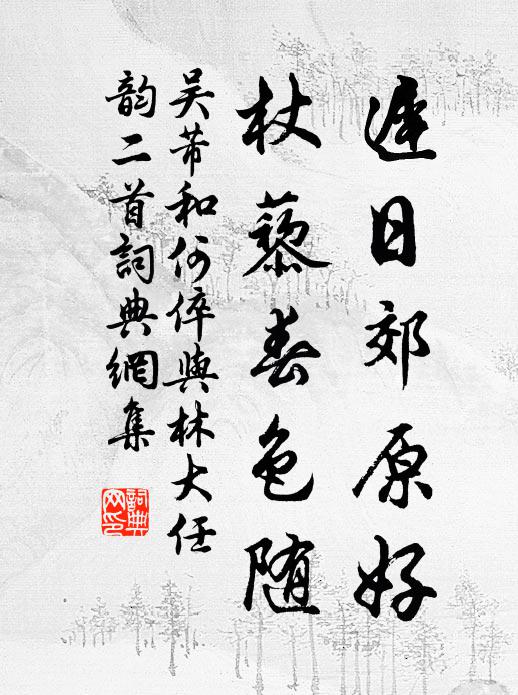 遲日郊原好
杖藜春色随
吴芾和何倅與林大任
韵二首詞典網集
詞典
网印